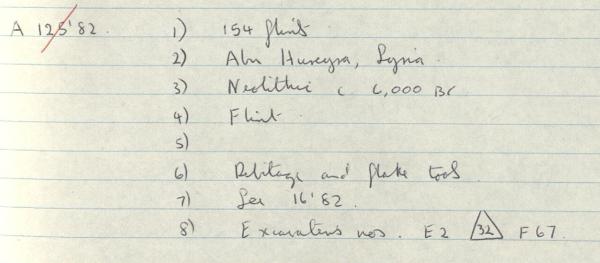 A 125'82. 1) 154 flints
2) Abu Hureyra, Syria.
3) Neolithic c 6,000 BC
4) Flint.
5)
6) Debitage and flake tools.
7) See 16'82.
8) Excavators nos. E2 32 F67.